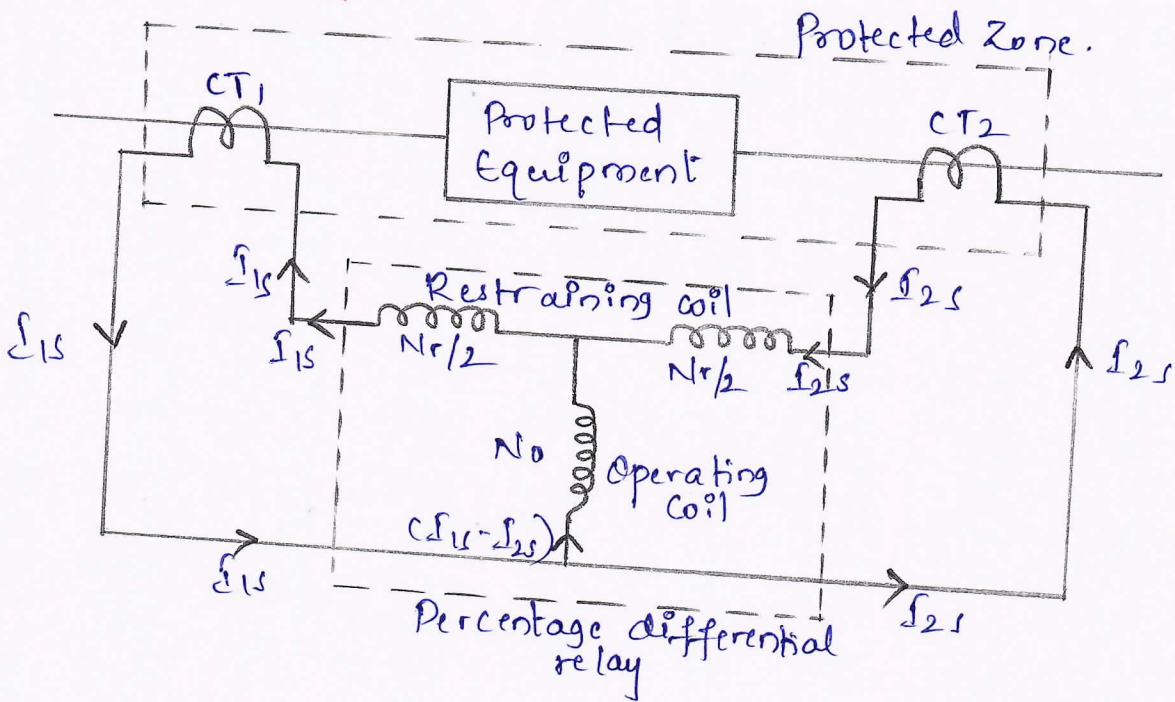 Protected Zone.
CT1
Protected
Equipment
CT2
I1s
Restraining coil
I2s
I1s
I1s
Nr/2
Nr/2
I2s
I2s
No
Operating
Coil
(I1s-I2s)
I1s
I2s
Percentage differential
relay